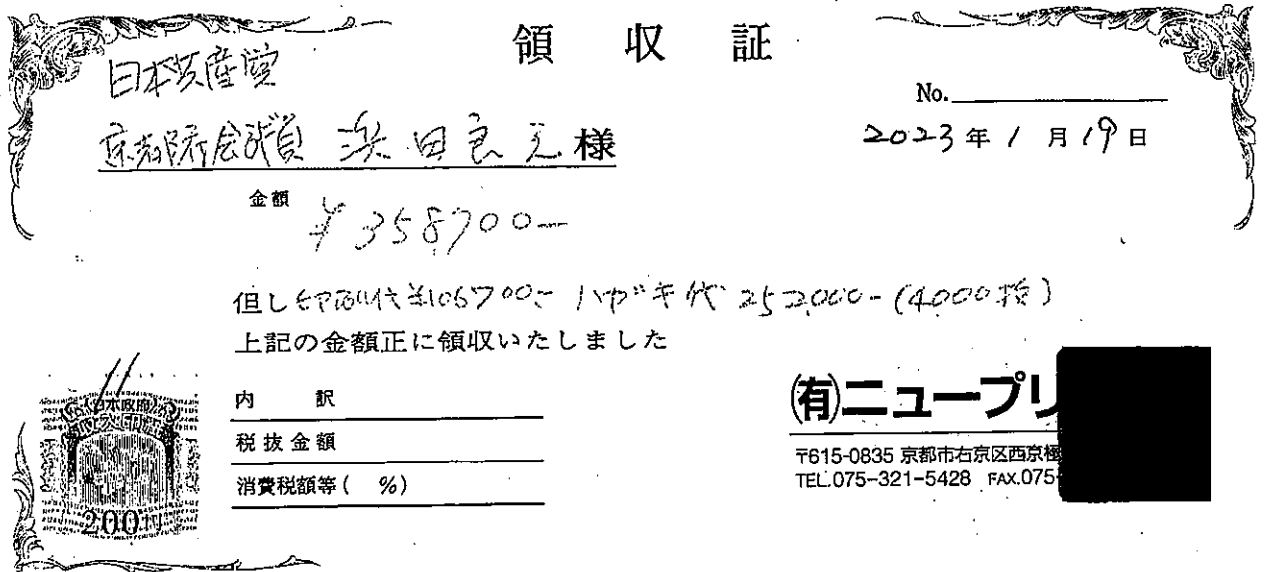 領収証
日本共産党
No.
京都府会議員 浜田良之様
2023年1月19日
金額
¥358700-
但し印刷代¥106700- ハガキ代252,000-(4,000枚)
上記の金額正に領収いたしました
内訳
税抜金額
消費税額等( %)
日本政府
収入印紙
200円
(有)ニュープリ
〒615-0835 京都市右京区西京極
TEL.075-321-5428 FAX.075-